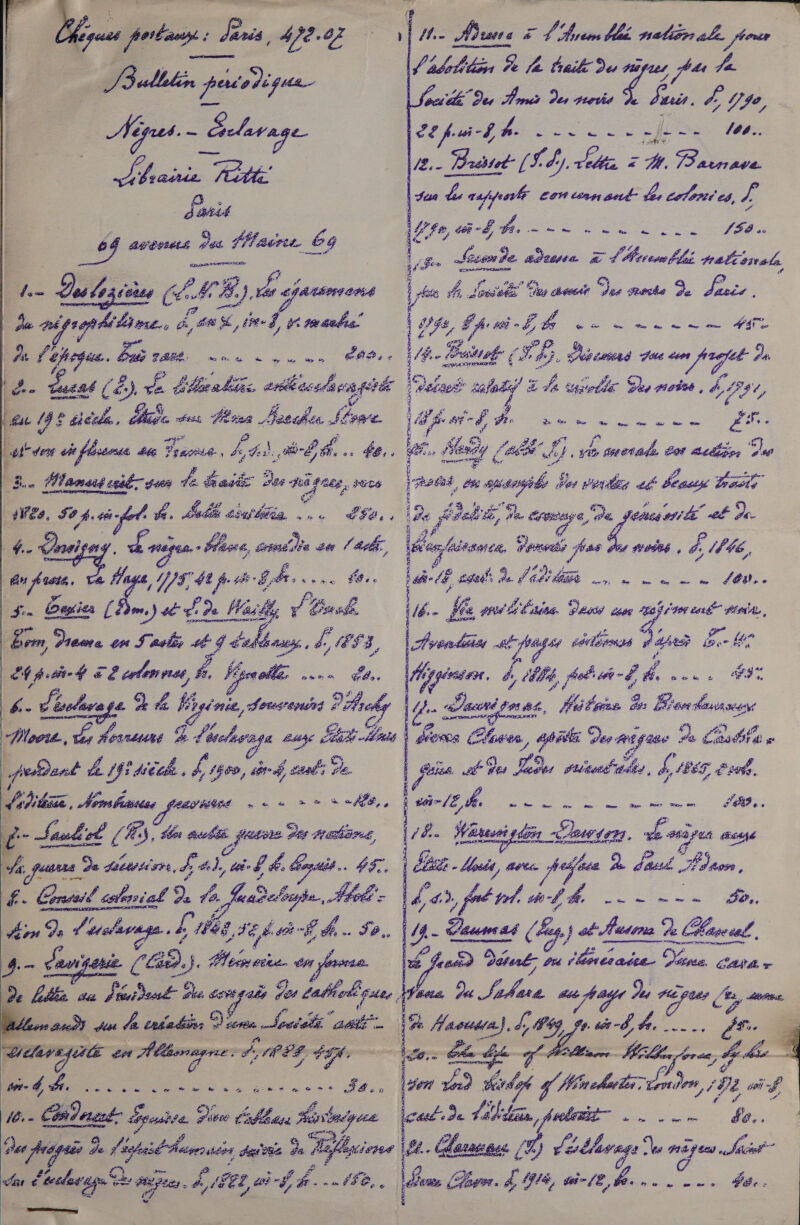 Chèques postaux : Paris, 472.07
Bulletin périodique
Nègres. - Esclavage
Librairie Ritti
Paris
69 avenue du Maine 69
1.- Deslozières (L.N.B.). Les égarements
du négrophilisme. P., an X, in-8, v. marbré
de l'époque. Très rare. 200..
2.- Lucas (E.). La littérature antiesclavagiste
au 19e siècle. Étude sur Mme Beecher Stowe
et son influence en France, P., s.d., in-8, br. .. 40..
3.- Manuscrit sur la traite des nègres, vers
1820. 50 p. in-fol. br. Belle écriture ... 250..
4.- Dorvigny. Le nègre-blanc, comédie en 1 acte,
en prose. La Haye, 1775, 42 p. in-8, br. .....
5.- Texier (Edm.) et L. de Wailly. L'Oncle
Tom, drame en 5 actes et 9 tableaux. P., 1853,
24 p. in-4 à 2 colonnes, br. Vignette .... 20..
6.- L'esclavage de la Virginie, souvenirs d'Archy
Moore, les horreurs de l'esclavage aux États-Unis
pendant le 19e siècle. P., 1900, in-4, cart. de
l'éditeur. Nombreuses gravures
7.- Sauliol (R.). Une autre guerre des nations,
la guerre de sécession. P., s.d., in-8, br. Croquis.. 45..
8.- Conseil colonial de la Guadeloupe. Aboli-
tion de l'esclavage. P., 1848, 52 p. in-8, br. .. 50..
9.- Lavigerie (Card.). Mémoire en forme
de lettre au Président du congrès des catholiques
allemands sur la création d'une Société anti-
esclavagiste en Allemagne. P., 1888, 45 p.
in-4, br. 30..
10.- Condorcet. Esquisse d'un tableau historique
des progrès de l'esprit humain, suivie de Réflexions
sur l'esclavage des nègres. P., 1822, in-8, br. ... 150..
11.- Adresse à l'Assemblée nationale pour
l'abolition de la traite des nègres, par la
Société des Amis des noirs de Paris. P., 1790,
22 p. in-8, br. 100..
12.- Brissot (J.P.). Lettre à M. Barnave
sur les rapports concernant les colonies, P.
1790, in-8, br. 150..
13.- Seconde adresse à l'Assemblée nationale,
par la Société des amis des noirs de Paris.
1790, 8 p. in-8, br. 45..
14.- Brissot (J.P.). Discours sur un projet de
décret relatif à la révolte des noirs. P., 1791,
18 p. in-8, br. 75..
15.- Hardy (abbé J.). vie morale en action des
noirs, ou exemples des vertus et beaux traits
de fidélité, de courage, de générosité et de
bienfaisance donnés par des noirs. P., 1846,
in-12, cart. de l'éditeur 100..
16.- Vie militaire dans un régiment noir.
Aventures et pages intimes d'après T.-W.
Higginson. P., 1884, pet. in-8, br. .... 45..
17.- Daurignac. Histoire du Bienheureux
Pierre Claver, apôtre des nègres de Cartha-
gène et des Indes occidentales. P., 1865, 2 vol.
in-12, br. 100..
18.- Warrington Dawson. Le nègre aux
États-Unis, avec préface de Paul Adam.
P., s.d., fort vol. in-8, br. 50..
19.- Daumas (Eug.) et Ausone de Chancel.
Le Grand Désert, ou itinéraire d'une cara-
vane du Sahara au pays des nègres (royaume
de Haoussa). P., 1849, gr. in-8, br. ..... 75..
20.- The life of William Wilberforce, by his
son Lord Bishop of Winchester. London, 1872, in-8,
cart. de l'éditeur, portrait 80..
21.- Charruau (J.) L'esclavage des nègres. Saint
Pierre Claver. P., 1914, in-12, br. 40..